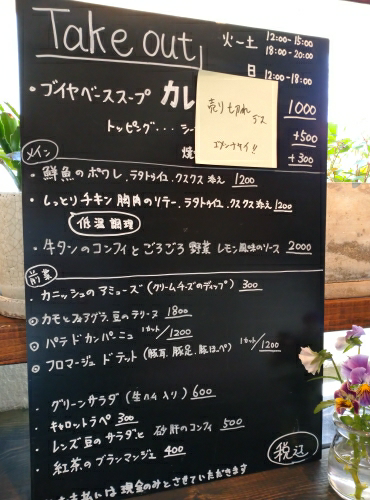 Take out
火〜土 12:00-15:00
18:00-20:00
日 12:00-18:00
・ブイヤベーススープ カレ 1000
トッピング・・・シー +500
焼 +300
売り切れ
デス
ゴメンナサイ!!
メイン
・鮮魚のポワレ、ラタトゥイユ、クスクス添え 1200
・しっとりチキン 胸肉のソテー、ラタトゥイユ、クスクス添え 1200
低温調理
・牛タンのコンフィとごろごろ野菜 レモン風味のソース 2000
前菜
・カニッシュのアミューズ(クリームチーズのディップ) 300
カモとフォアグラ、豆のテリーヌ 1800
パテドカンパーニュ 1カット/1200
フロマージュ ドテット(豚耳、豚足、豚ほっぺ) 1カット/1200
・グリーンサラダ(生ハム入り) 600
・キャロットラペ 300
・レンズ豆のサラダと砂肝のコンフィ 500
・紅茶のブランマンジェ 400
税込
お支払いは現金のみとさせていただきます